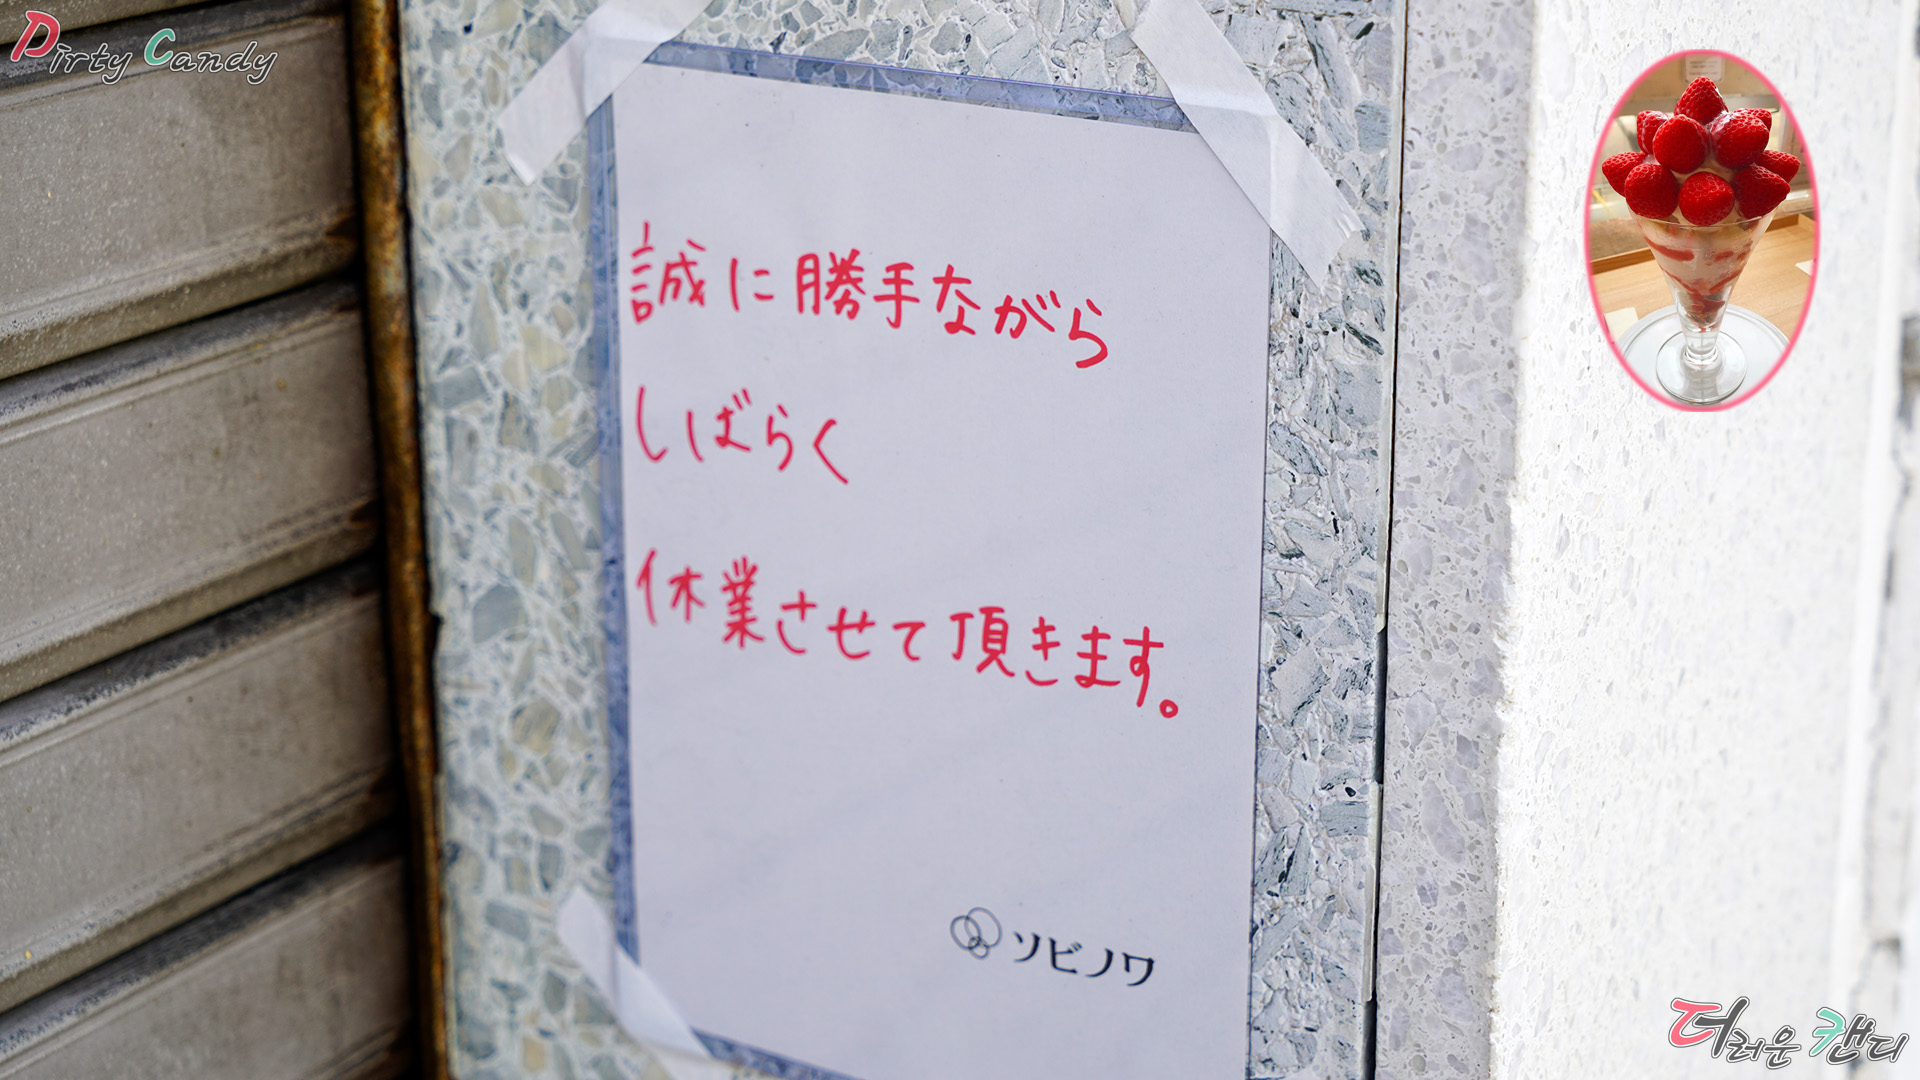 Dirty Candy
誠に勝手ながら
しばらく
休業させて頂きます。
ソビノワ
더러운 캔디